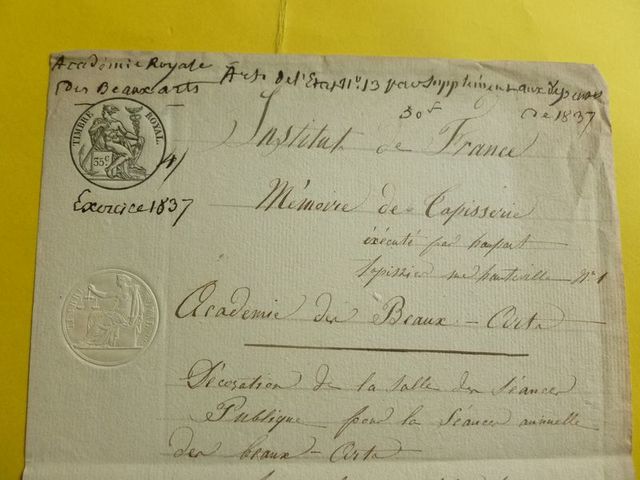 Académie Royale
des Beaux arts
Art. de l'Etat N.º 13 par Supplément aux dépenses
de 1837
50f
TIMBRE ROYAL
35c
Exercice 1837
Institut de France
Mémoire de Tapisserie
éxécuté par
tapissier rue hauteville N.º 1
Academie des Beaux-Arts
Décoration de la Salle des Séances
Publique pour la Séance annuelle
des beaux-Arts